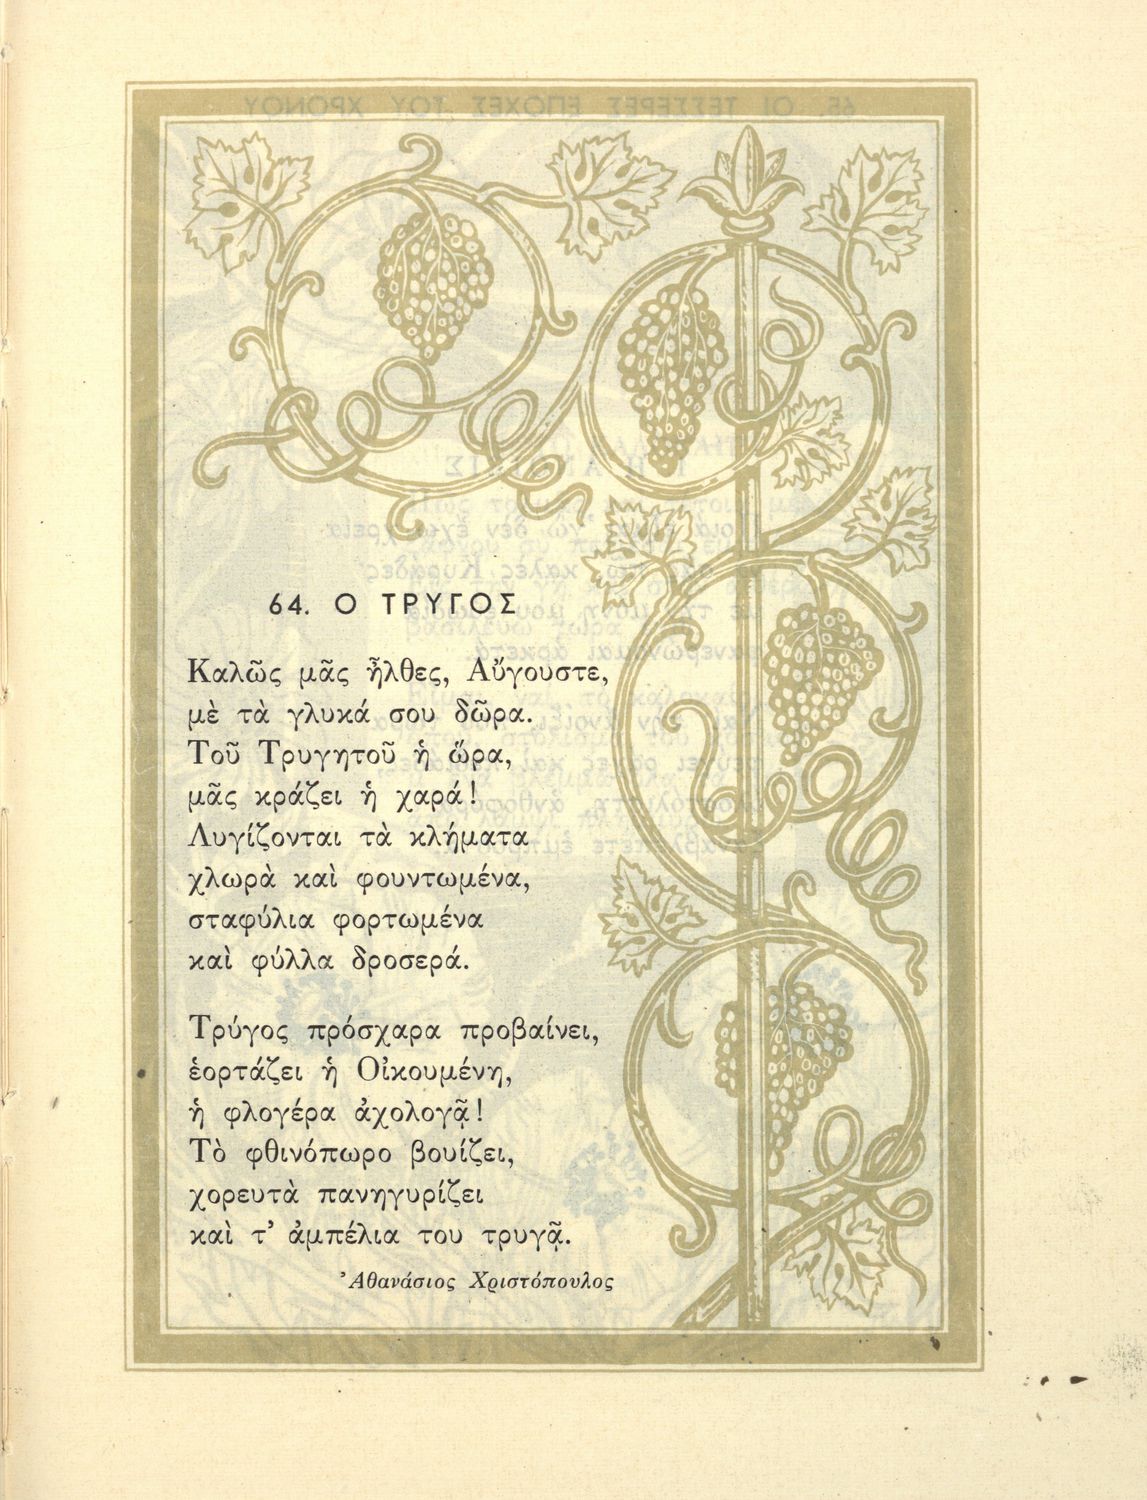 64. Ο ΤΡΥΓΟΣ
Καλῶς μᾶς ἦλθες, Αὔγουστε,
μὲ τὰ γλυκά σου δῶρα.
Τοῦ Τρυγητοῦ ἡ ὥρα,
μᾶς κράζει ἡ χαρά!
Λυγίζονται τὰ κλήματα
χλωρὰ καὶ φουντωμένα,
σταφύλια φορτωμένα
καὶ φύλλα δροσερά.
Τρύγος πρόσχαρα προβαίνει,
ἑορτάζει ἡ Οἰκουμένη,
ἡ φλογέρα ἀχολογᾷ!
Τὸ φθινόπωρο βουίζει,
χορευτὰ πανηγυρίζει
καὶ τ’ ἀμπέλια του τρυγᾷ.
Ἀθανάσιος Χριστόπουλος